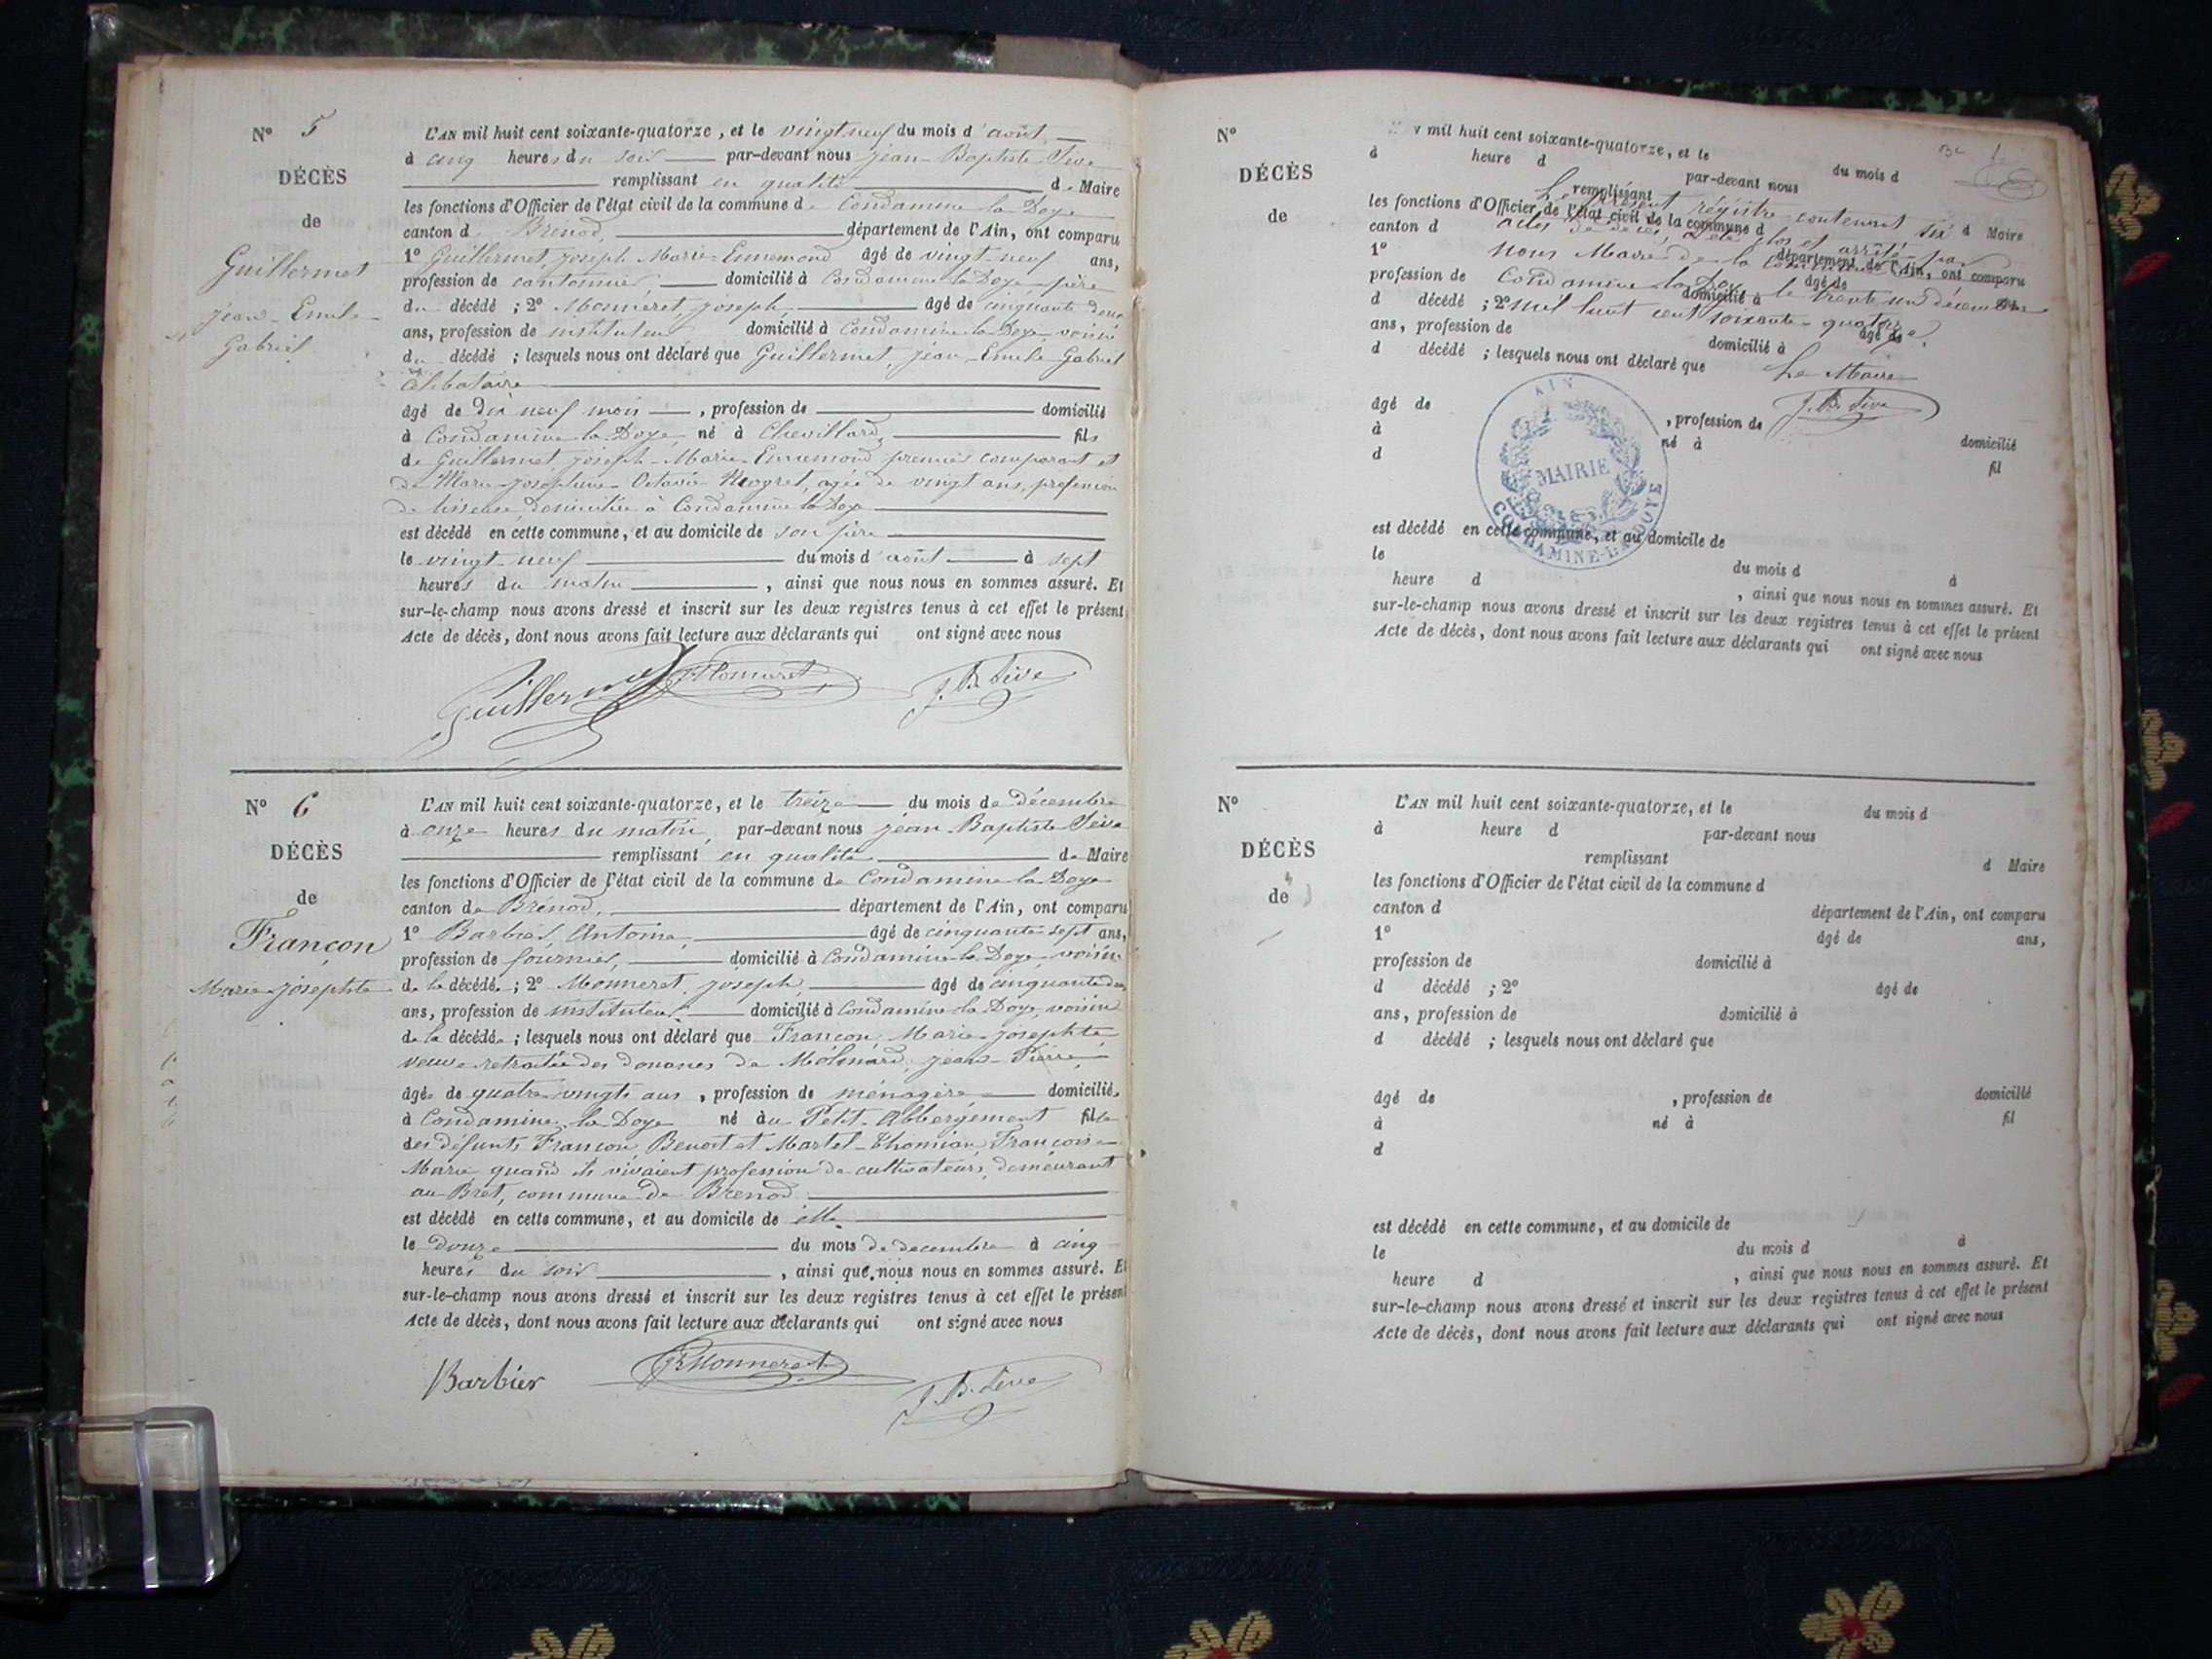 N° 5
DÉCÈS
de
Guillermet
jean-Emile-
Gabriel
L'AN mil huit cent soixante-quatorze, et le vingt neuf du mois d'août
à cinq heures du soir par-devant nous jean-Baptiste Sève
remplissant en qualité de Maire
les fonctions d'Officier de l'état civil de la commune de Condamine la Doye
canton de Brénod, département de l'Ain, ont comparu
1° Guillermet, joseph Marie-Ennemond âgé de vingt-neuf ans,
profession de cantonnier, domicilié à Condamine la Doye père
du décédé ; 2° Monneret, joseph, âgé de cinquante deux
ans, profession de instituteur domicilié à Condamine la Doye voisin
du décédé ; lesquels nous ont déclaré que Guillermet, jean-Emile-Gabriel
célibataire
âgé de dix neuf mois, profession de domicilié
à Condamine la Doye né à Chevillard, fils
de Guillermet joseph-Marie-Ennemond premier comparant et
de Marie-joséphine-Octavie, agée de vingt ans, profession
de tisseuse domiciliée à Condamine la Doye
est décédé en cette commune, et au domicile de son père
le vingt-neuf du mois d'août à sept
heures du matin, ainsi que nous nous en sommes assuré. Et
sur-le-champ nous avons dressé et inscrit sur les deux registres tenus à cet effet le présent
Acte de décès, dont nous avons fait lecture aux déclarants qui ont signé avec nous
Guillermet Monneret J. B. Sève
N° 6
DÉCÈS
de
Françon
Marie-josephte
L'AN mil huit cent soixante-quatorze, et le treize du mois de décembre
à onze heures du matin, par-devant nous jean-Baptiste Sève
remplissant en qualité de Maire
les fonctions d'Officier de l'état civil de la commune de Condamine la Doye
canton de Brénod, département de l'Ain, ont comparu
1° Barbier, Antoine, âgé de cinquante sept ans,
profession de fournier, domicilié à Condamine la Doye, voisin
de la décédée ; 2° Monneret, joseph âgé de cinquante deux
ans, profession de instituteur domicilié à Condamine la Doye, voisin
de la décédée ; lesquels nous ont déclaré que Françon Marie-josephte
veuve retraitée des douanes de Molinard, jean-Pierre,
âgée de quatre-vingts ans, profession de ménagère domiciliée
à Condamine la Doye né au Petit-Abbergement fille
des défunts Françon, Benoit et Martel-Thomian, Françoise-
Marie quand ils vivaient profession de cultivateurs, demeurant
au Bret, commune de Brenod
est décédé en cette commune, et au domicile de elle
le douze du mois de decembre à cinq
heures du soir, ainsi que nous nous en sommes assuré. Et
sur-le-champ nous avons dressé et inscrit sur les deux registres tenus à cet effet le présent
Acte de décès, dont nous avons fait lecture aux déclarants qui ont signé avec nous
Barbier Monneret J. B. Sève
N°
DÉCÈS
de
mil huit cent soixante-quatorze, et le du mois d
à heure d par-devant nous
remplissant d Maire
les fonctions d'Officier de l'état civil de la commune d
canton d département de l'Ain, ont comparu
1° âgé de ans,
profession de domicilié à
d décédé ; 2° âgé de
ans, profession de domicilié à
d décédé ; lesquels nous ont déclaré que
Le présent régistre contenant six
actes de décès, a été clos et arrêté par
nous Maire de la commune de
Condamine la Doye le trente un décembre
mil huit cent soixante-quatorze.
Le Maire
J. B. Sève
AIN
MAIRIE
CONDAMINE-LA-DOYE
âgé de , profession de domicilié
à né à fil
d
est décédé en cette commune, et au domicile de
le du mois d à
heure d , ainsi que nous nous en sommes assuré. Et
sur-le-champ nous avons dressé et inscrit sur les deux registres tenus à cet effet le présent
Acte de décès, dont nous avons fait lecture aux déclarants qui ont signé avec nous
N°
DÉCÈS
de
L'AN mil huit cent soixante-quatorze, et le du mois d
à heure d par-devant nous
remplissant d Maire
les fonctions d'Officier de l'état civil de la commune d
canton d département de l'Ain, ont comparu
1° âgé de ans,
profession de domicilié à
d décédé ; 2° âgé de
ans, profession de domicilié à
d décédé ; lesquels nous ont déclaré que
âgé de , profession de domicilié
à né à fil
d
est décédé en cette commune, et au domicile de
le du mois d à
heure d , ainsi que nous nous en sommes assuré. Et
sur-le-champ nous avons dressé et inscrit sur les deux registres tenus à cet effet le présent
Acte de décès, dont nous avons fait lecture aux déclarants qui ont signé avec nous